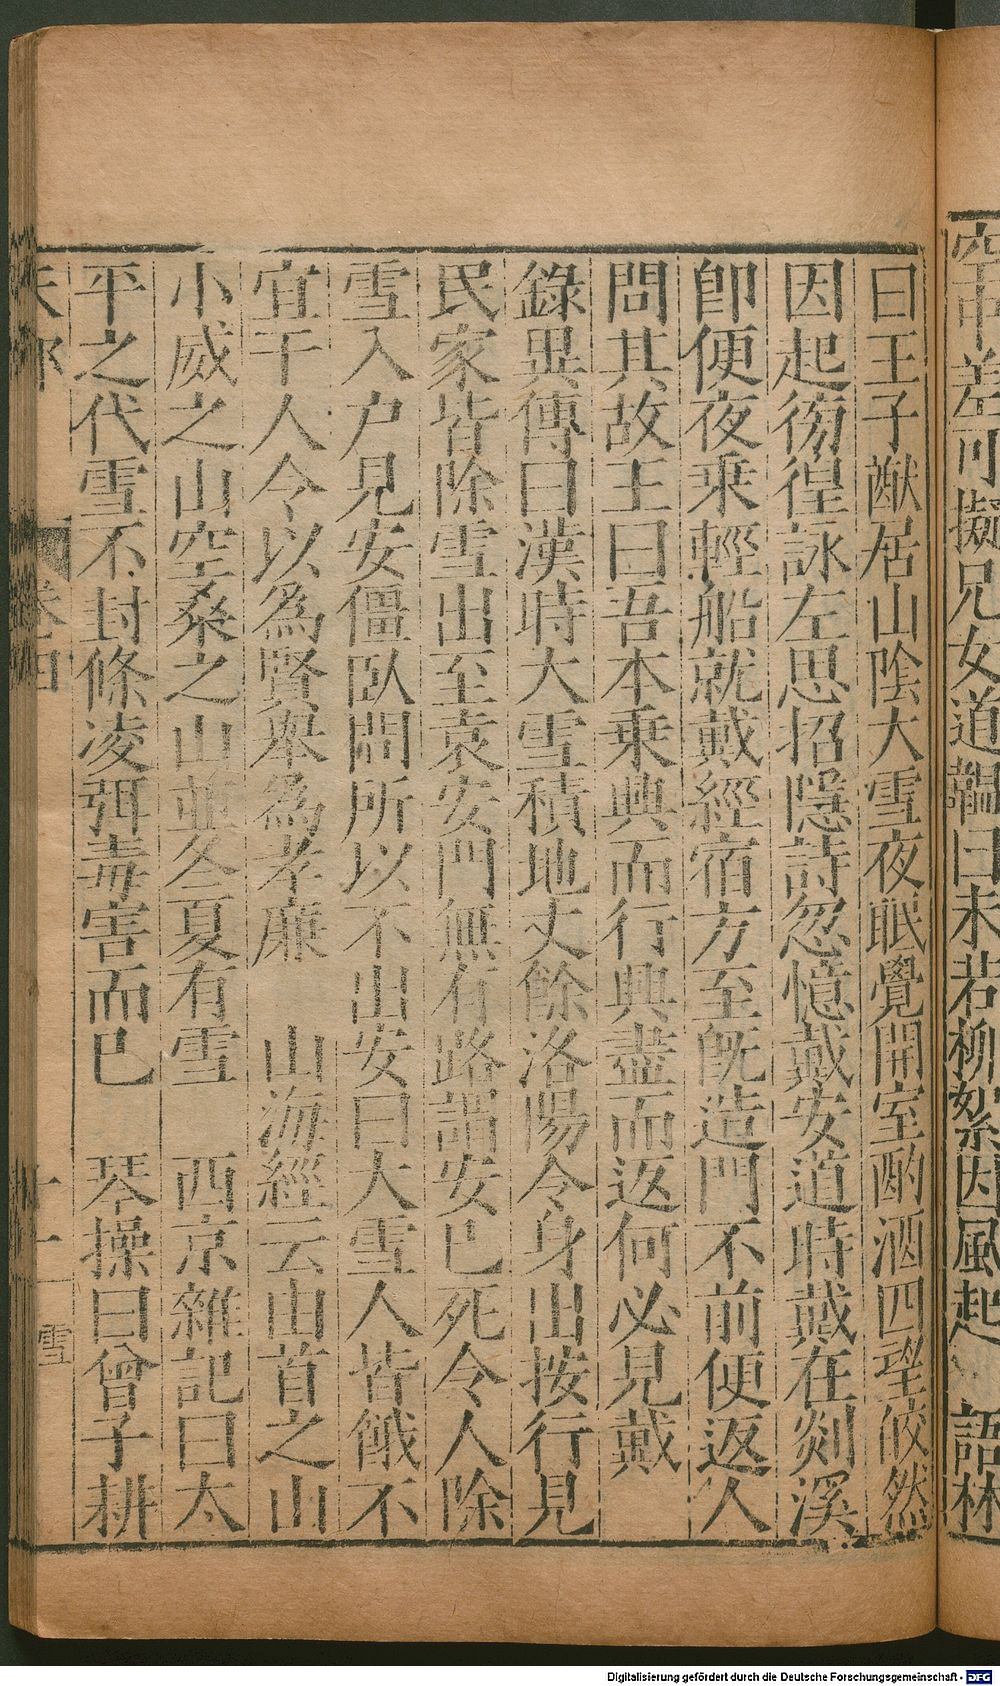 空中差可擬兄女道韞曰未若柳絮因風起　語林
曰王子猷居山陰大雪夜眠覺開室酌酒四望皎然
因起彷徨詠左思招隱詩忽憶戴安道時戴在剡溪
即便夜乗輕船就戴經宿方至旣造門不前便返人
問其故王曰吾本乗興而行興盡而返何必見戴
錄異傳曰漢時大雪積地丈餘洛陽令身出按行見
民家皆除雪出至袁安門無有路謂安已死令人除
雪入户見安僵臥問所以不出安曰大雪人皆餓不
宜干人令以為賢舉為孝廉　山海經云山首之山
小威之山空桑之山並冬夏有雪　西京雜記曰太
平之代雪不封條凌弭毒害而已　琴操曰曾子耕
天部
卷四
雪
Digitalisierung gefördert durch die Deutsche Forschungsgemeinschaft - DFG